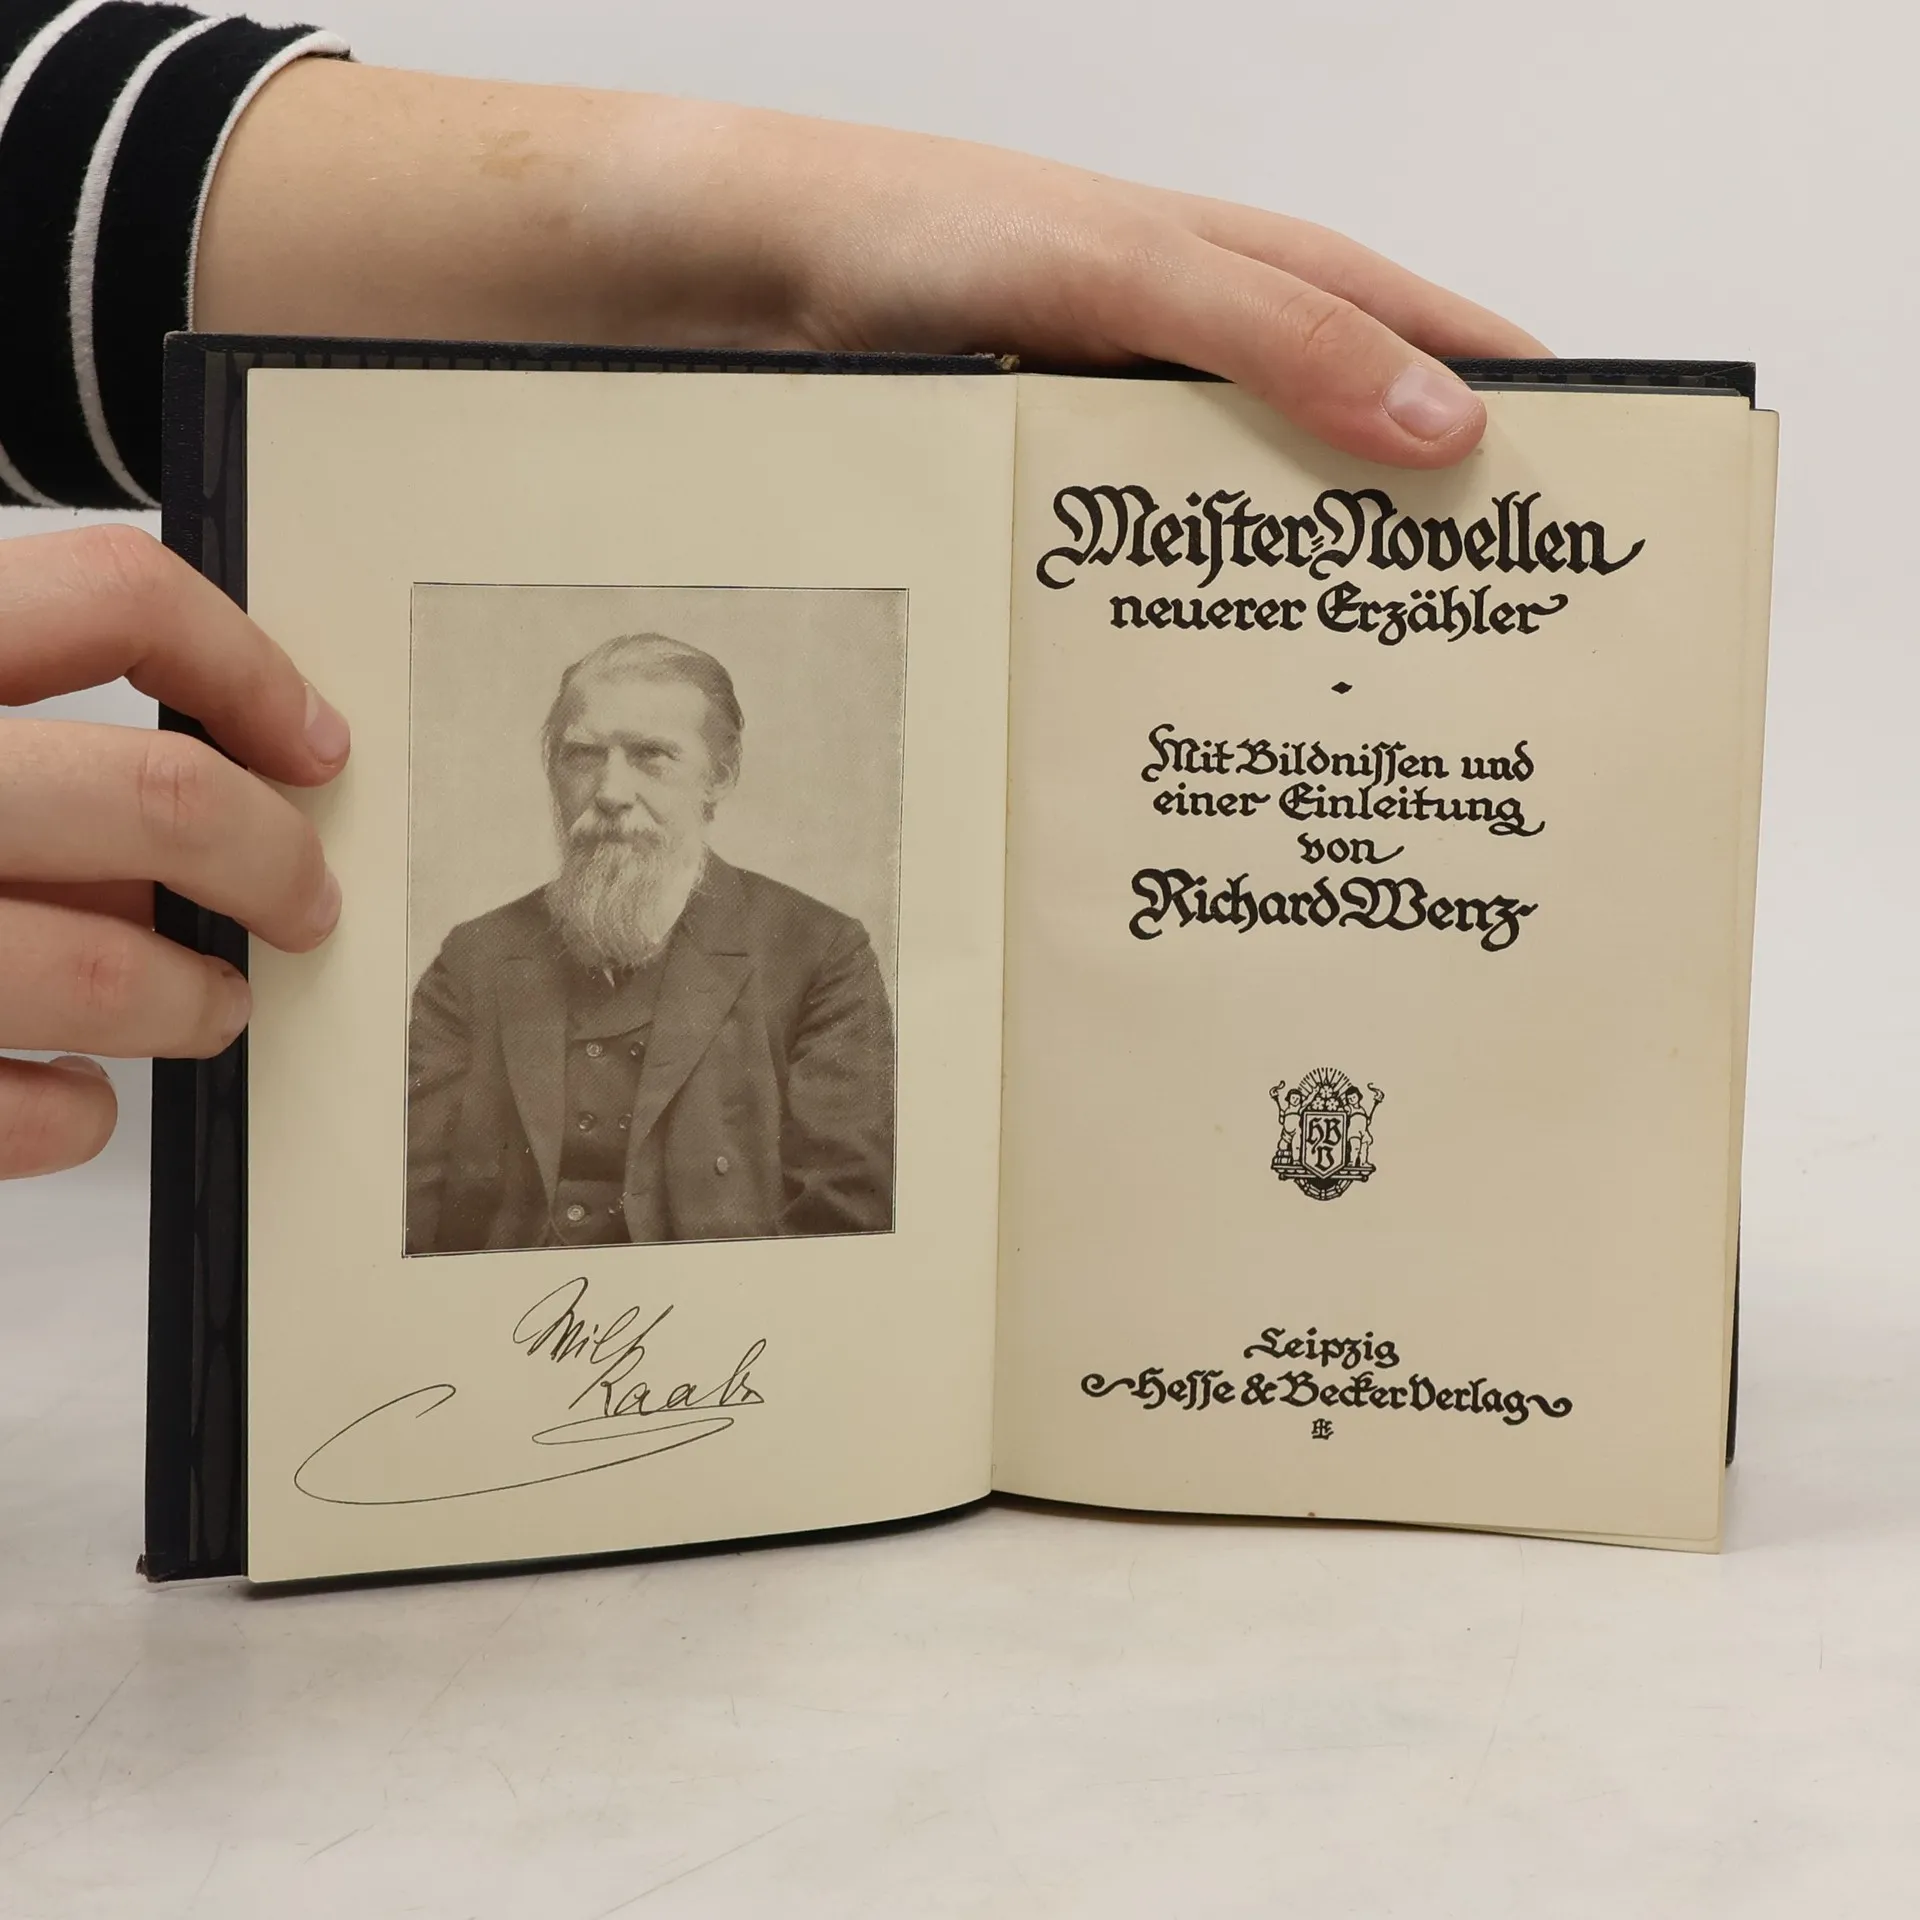 Wilh
Raabe
Meiſter-Novellen
neuerer Erzähler
Mit Bildniſſen und
einer Einleitung
von
Richard Wenz
HB
V
Leipzig
Heſſe & Becker Verlag